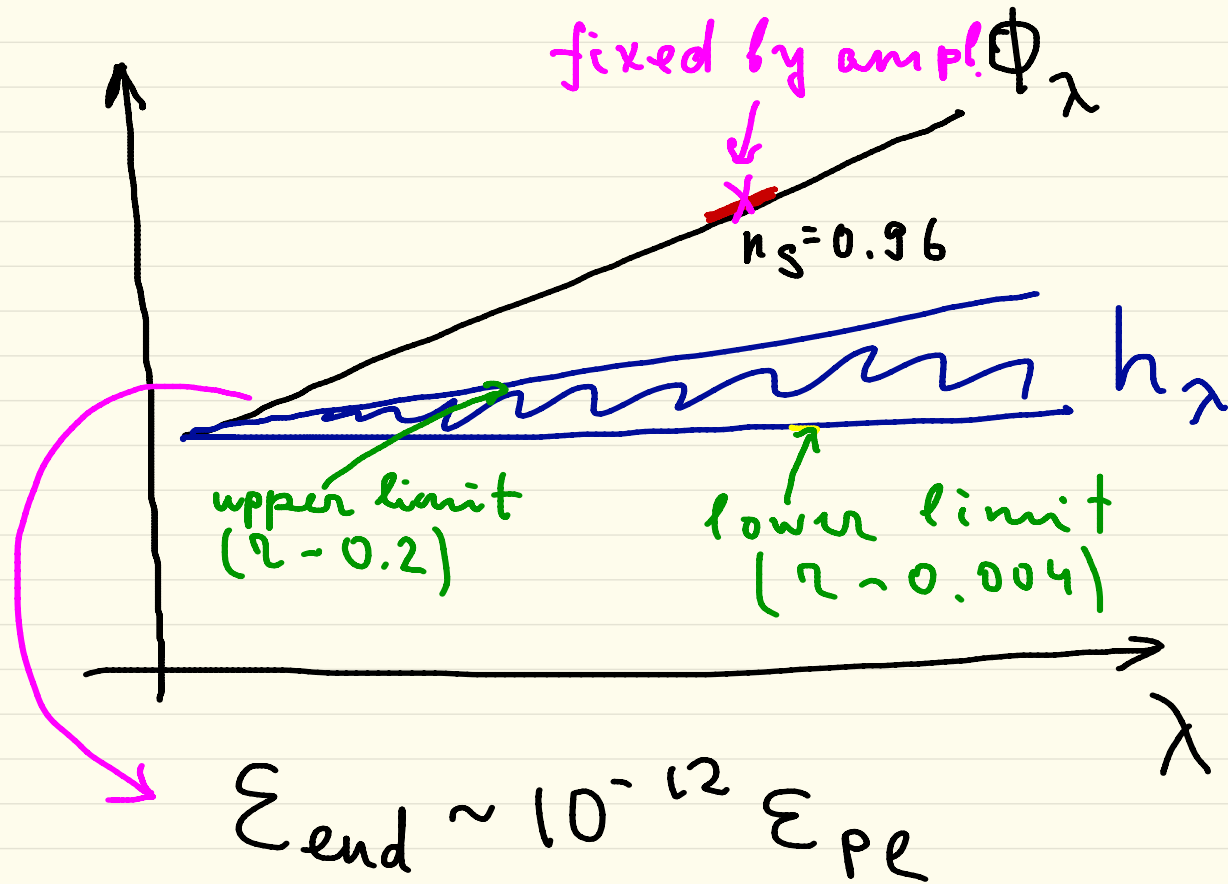 fixed by ampl. Φ_λ
n_s = 0.96
h_λ
upper limit
(r ~ 0.2)
lower limit
(r ~ 0.004)
λ
ε_end ~ 10^-12 ε_pl